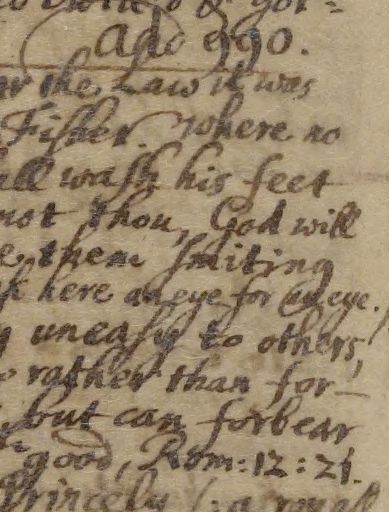 Ado 990.
the Law it was
Fisher. Where no
all wash his feet
not thou, God will
e them smiting
here an eye for an eye.
uneasy to others,
rather than for-
but can forbear
good, Rom: 12: 21.
Princely (: a royall